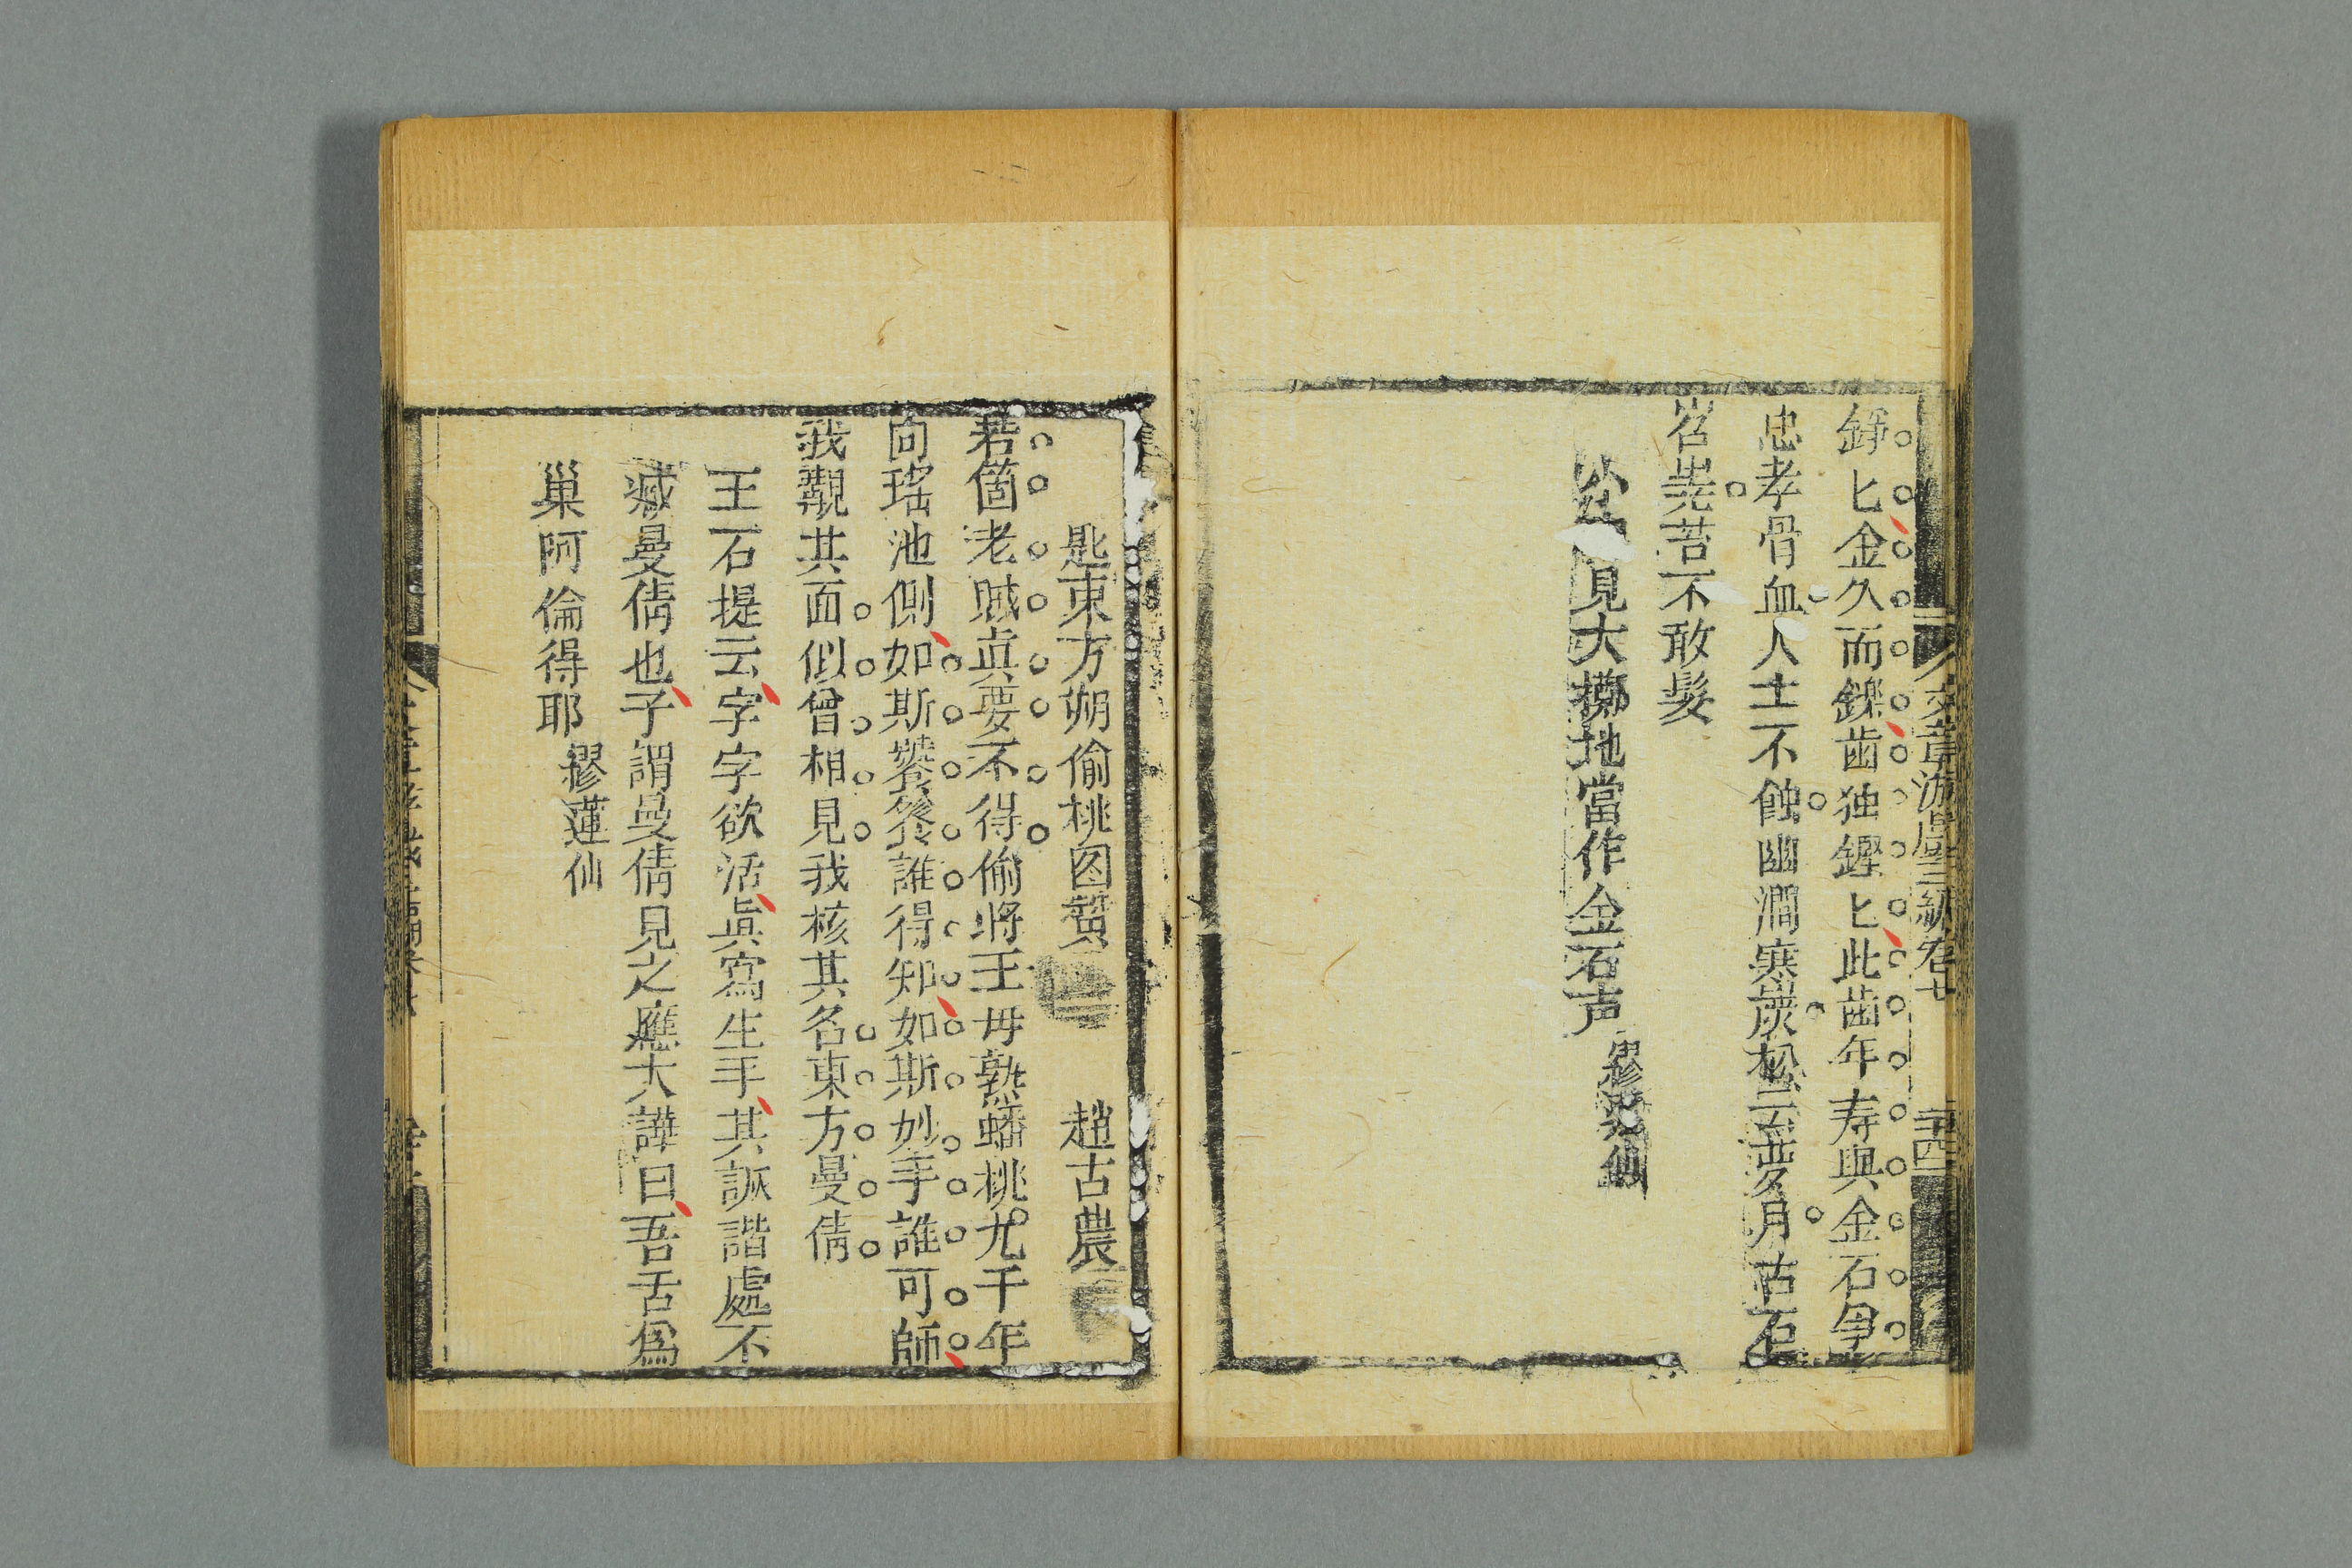 文章游戲三編卷七 三十四
錚匕金久而鑠齒独鏗匕此齒年寿與金石爭
忠孝骨血人士不蝕幽澗寒炭松雲夢月古石
岩羗苔不敢髮
見大擲地當作金石声 繆蓮仙
題東方朔偷桃图贊 趙古農
若箇老賊眞要不得偷將王母熟蟠桃九千年
向瑤池側如斯饕餮誰得知如斯妙手誰可師
我觀其面似曾相見我核其名東方曼倩
王石提云字字欲活眞寫生手其詼諧處不
減曼倩也予謂曼倩見之應大譁曰吾舌為
巢阿倫得耶 繆蓮仙